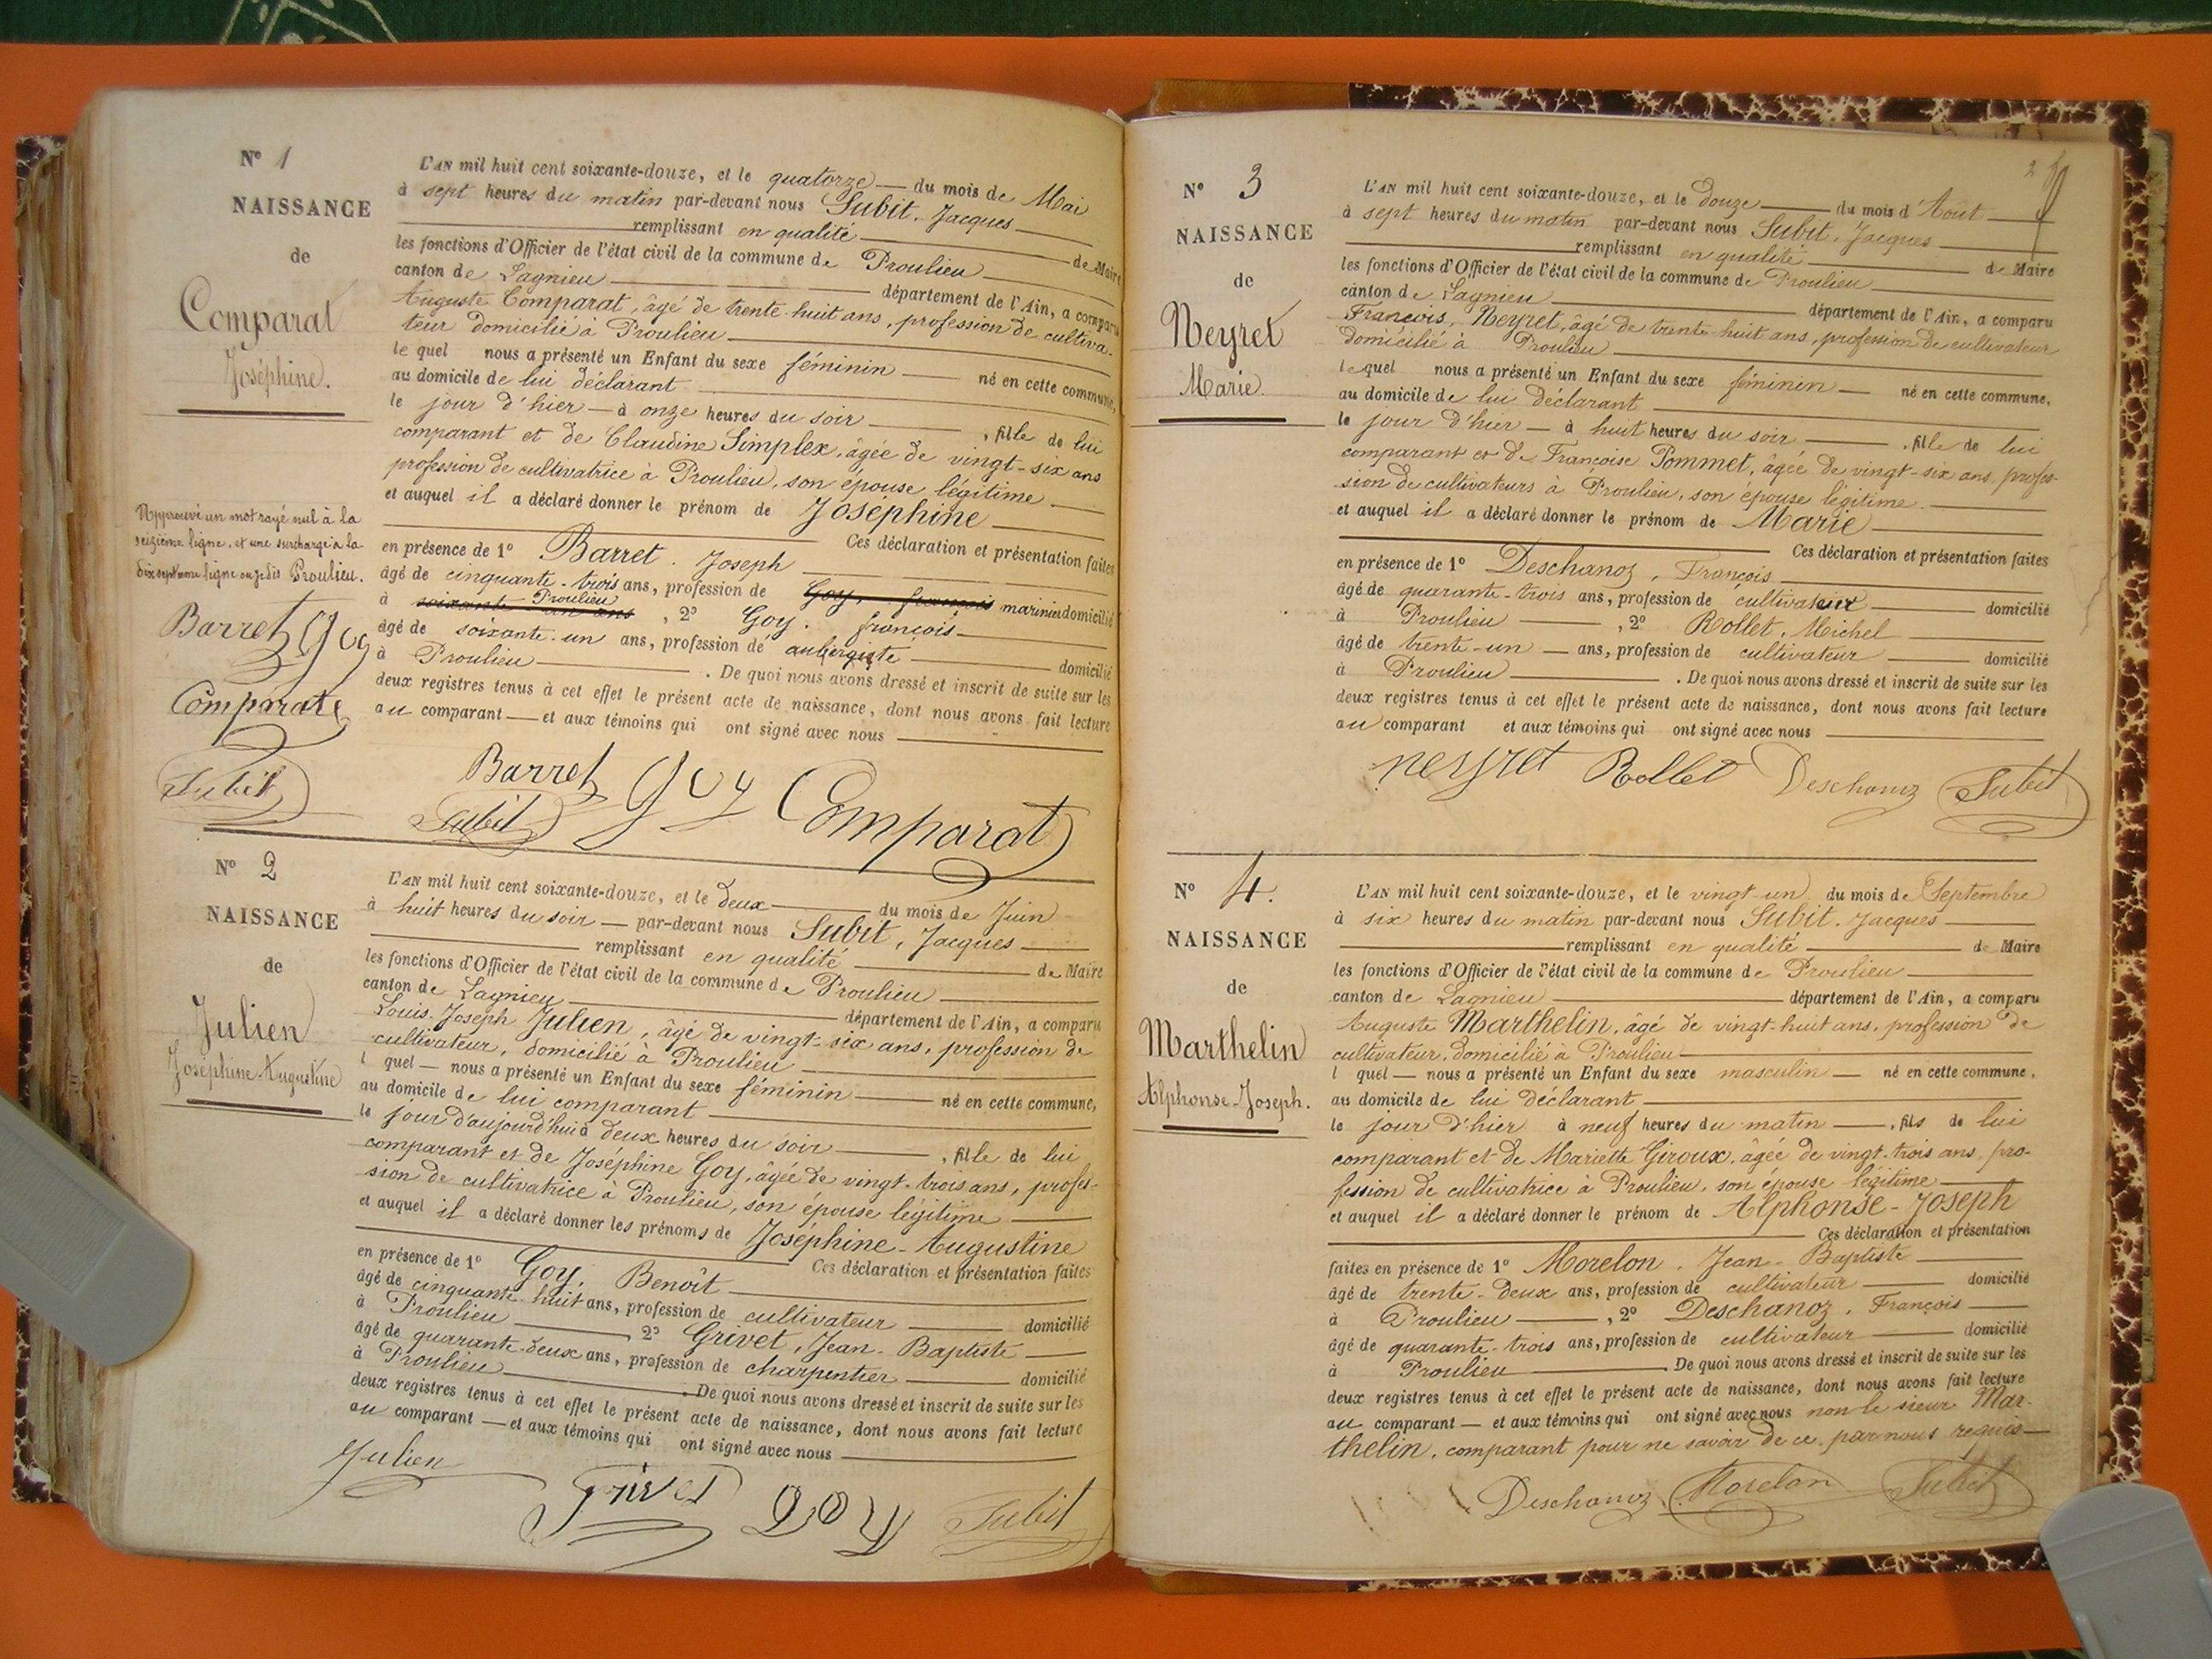 N° 1
NAISSANCE
de
Comparat
Joséphine.
L'AN mil huit cent soixante-douze, et le quatorze — du mois de Mai
à sept heures du matin par-devant nous Subit, Jacques
remplissant en qualité de Maire
les fonctions d'Officier de l'état civil de la commune de Proulieu
canton de Lagnieu département de l'Ain, a comparu
Auguste Comparat, âgé de trente-huit ans, profession de cultiva-
teur domicilié à Proulieu
le quel nous a présenté un Enfant du sexe féminin né en cette commune,
au domicile de lui déclarant
le jour d'hier — à onze heures du soir , fille de lui
comparant et de Claudine Simplex, âgée de vingt-six ans
profession de cultivatrice à Proulieu, son épouse légitime
et auquel il a déclaré donner le prénom de Joséphine
Ces déclaration et présentation faites
en présence de 1° Barret. Joseph
âgé de cinquante-trois ans, profession de Goy, françois marinier domicilié
à soixante un ans Proulieu , 2° Goy. françois
âgé de soixante-un ans, profession de aubergiste domicilié
à Proulieu . De quoi nous avons dressé et inscrit de suite sur les
deux registres tenus à cet effet le présent acte de naissance, dont nous avons fait lecture
au comparant — et aux témoins qui ont signé avec nous
Approuvé un mot rayé nul à la
seizième ligne, et une surcharge à la
dix septième ligne où je dis Proulieu.
Barret Goy
Comparat
Subit
Barret Goy Comparat
Subit
N° 2
NAISSANCE
de
Julien
Joséphine-Augustine
L'AN mil huit cent soixante-douze, et le deux du mois de Juin
à huit heures du soir — par-devant nous Subit, Jacques
remplissant en qualité de Maire
les fonctions d'Officier de l'état civil de la commune de Proulieu
canton de Lagnieu département de l'Ain, a comparu
Louis-Joseph Julien, âgé de vingt-six ans, profession de
cultivateur, domicilié à Proulieu
l quel — nous a présenté un Enfant du sexe féminin né en cette commune,
au domicile de lui comparant
le jour d'aujourd'hui à deux heures du soir , fille de lui
comparant et de Joséphine Goy, âgée de vingt-trois ans, profes-
sion de cultivatrice à Proulieu, son épouse légitime
et auquel il a déclaré donner les prénoms de Joséphine-Augustine
Ces déclaration et présentation faites
en présence de 1° Goy, Benoît
âgé de cinquante-huit ans, profession de cultivateur domicilié
à Proulieu , 2° Grivet, Jean-Baptiste
âgé de quarante-deux ans, profession de charpentier domicilié
à Proulieu . De quoi nous avons dressé et inscrit de suite sur les
deux registres tenus à cet effet le présent acte de naissance, dont nous avons fait lecture
au comparant — et aux témoins qui ont signé avec nous
Julien
Grivet Goy Subit
N° 3
NAISSANCE
de
Neyret
Marie.
L'AN mil huit cent soixante-douze, et le douze du mois d'Août
à sept heures du matin par-devant nous Subit, Jacques
remplissant en qualité de Maire
les fonctions d'Officier de l'état civil de la commune de Proulieu
canton de Lagnieu département de l'Ain, a comparu
François, Neyret, âgé de trente-huit ans, profession de cultivateur
domicilié à Proulieu
lequel nous a présenté un Enfant du sexe féminin né en cette commune,
au domicile de lui déclarant
le jour d'hier — à huit heures du soir , fille de lui
comparant et de Françoise Pommet, âgée de vingt-six ans, profes-
sion de cultivateurs à Proulieu, son épouse légitime
et auquel il a déclaré donner le prénom de Marie
Ces déclaration et présentation faites
en présence de 1° Deschanoz, François
âgé de quarante-trois ans, profession de cultivateur domicilié
à Proulieu , 2° Rollet, Michel
âgé de trente-un ans, profession de cultivateur domicilié
à Proulieu . De quoi nous avons dressé et inscrit de suite sur les
deux registres tenus à cet effet le présent acte de naissance, dont nous avons fait lecture
au comparant et aux témoins qui ont signé avec nous
neyret Rollet Deschanoz Subit
N° 4.
NAISSANCE
de
Marthelin
Alphonse-Joseph.
L'AN mil huit cent soixante-douze, et le vingt-un du mois de Septembre
à six heures du matin par-devant nous Subit, Jacques
remplissant en qualité de Maire
les fonctions d'Officier de l'état civil de la commune de Proulieu
canton de Lagnieu département de l'Ain, a comparu
Auguste Marthelin, âgé de vingt-huit ans, profession de
cultivateur, domicilié à Proulieu
l quel — nous a présenté un Enfant du sexe masculin né en cette commune,
au domicile de lui déclarant
le jour d'hier à neuf heures du matin , fils de lui
comparant et de Mariette Giroux, âgée de vingt-trois ans, pro-
fession de cultivatrice à Proulieu, son épouse légitime
et auquel il a déclaré donner le prénom de Alphonse-Joseph
Ces déclaration et présentation
faites en présence de 1° Morelon, Jean-Baptiste
âgé de trente-deux ans, profession de cultivateur domicilié
à Proulieu , 2° Deschanoz, François
âgé de quarante-trois ans, profession de cultivateur domicilié
à Proulieu . De quoi nous avons dressé et inscrit de suite sur les
deux registres tenus à cet effet le présent acte de naissance, dont nous avons fait lecture
au comparant — et aux témoins qui ont signé avec nous non le sieur Mar-
thelin, comparant pour ne savoir de ce par nous requis
Deschanoz Morelon Subit